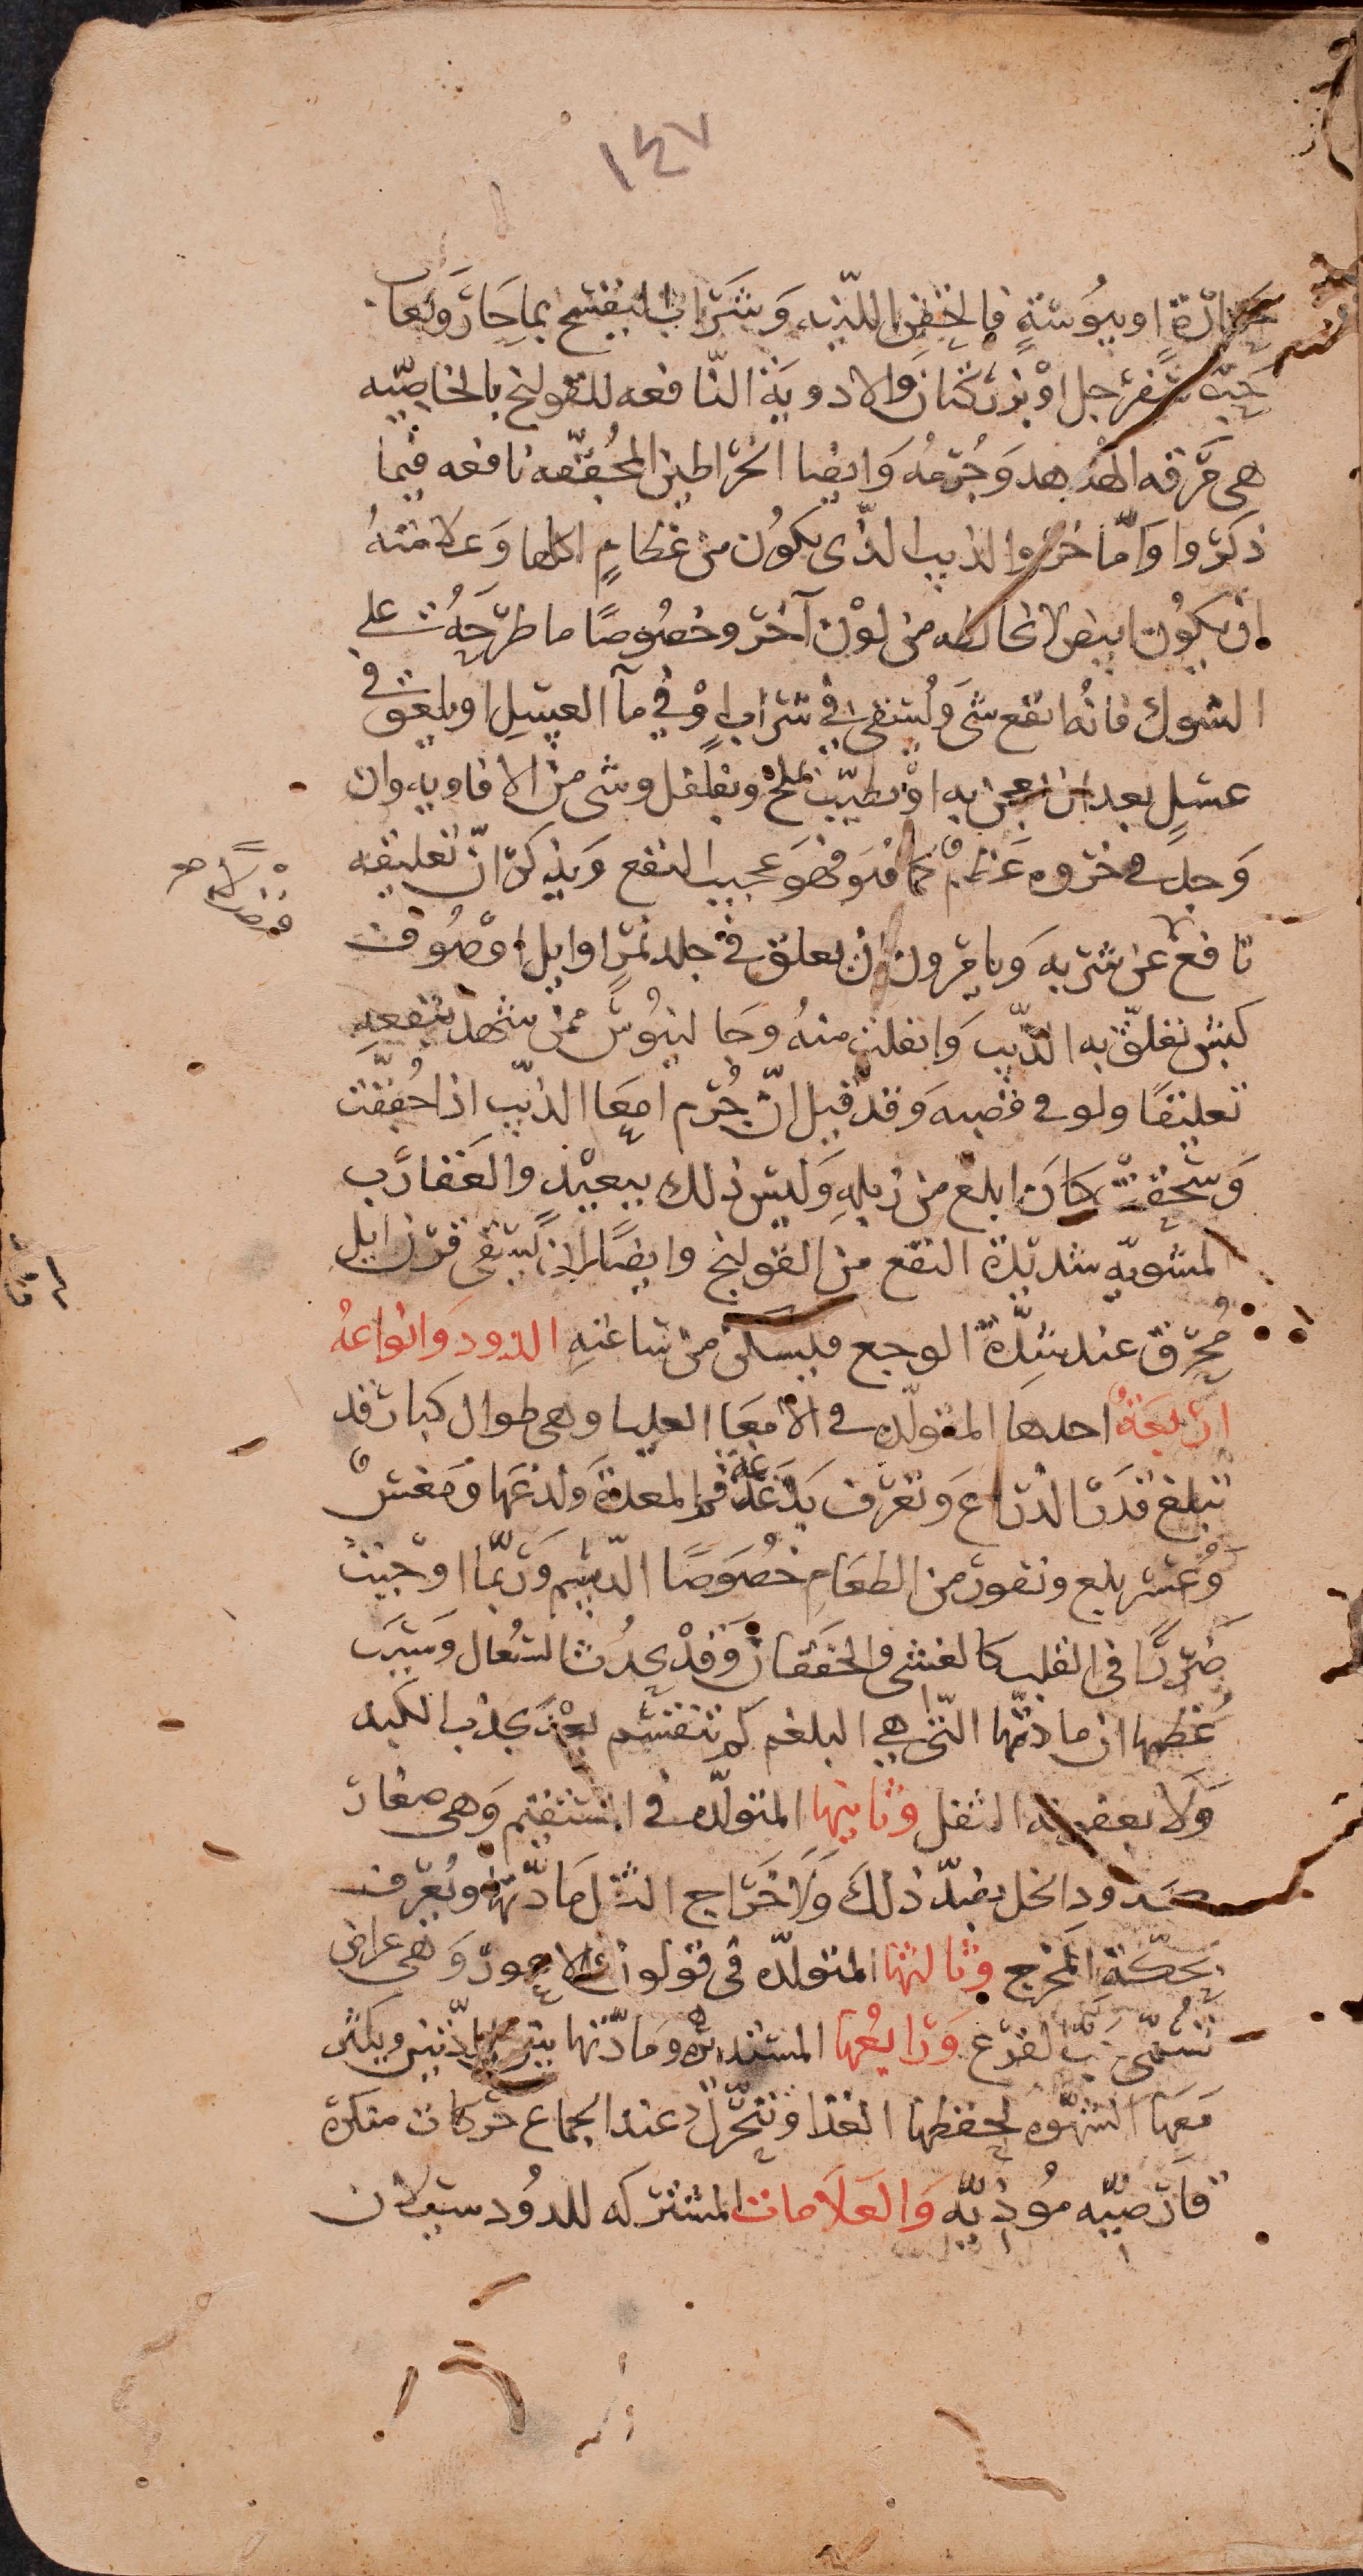 ١٤٧
حرارة او يبوسة فالحقن اللينه وشراب البنفسج بماحار ولعاب
حب سفرجل او بزركتان والادوية النافعه للقولنج بالخاصيه
هى مرقه الهدهد وجرمه وايضا الخراطين المجففه نافعه فيما
ذكروا واما خرو الذيب الذى يكون من عظام اكلها وعلامته
ان يكون ابيض لا يخالطه من لون آخر وخصوصا ما طرحه على
الشوك فانه انفع شى ويسقى في شراب او في مآ العسل او يلعق في
عسل بعد ان يعجن به او يطيب بملح وبفلفل وشى من الافاويه وان
وجد في خروه عظم كما هو فهو عجيب النفع ويذكر ان تعليقه
نافع عن شربه ويامرون ان يعلق في جلد نمر او ايل او صوف
كبش تعلق به الذيب وانفلت منه وجالينوس ممن شهد بنفعه
تعليقا ولو في فضه وقد قيل ان جرم امعا الذيب اذا جففت
وسحقت كان ابلغ من زبله وليس ذلك ببعيد والعقارب
لمشويه شديدة النفع من القولنج وايضا ان يسقى قرن ايل
محرق عند شدة الوجع فيسكن من ساعته الدود وانواعه
اربعة احدها المتولده في الامعا العليا وهى طوال كبار قد
تبلغ قدر الذراع وتعرف بدغدغة فم المعدة ولذعها ومغس
وعسر بلع وتقور من الطعام خصوصا الدسم وربما اوجبت
ضررا في القلب كالغشى والخفقان وقد يحدث السعال وسبب
عظمها ان مادتها التى هي البلغم لم تنقسم بعد بجذب الكبد
ولا بعفونة الثفل وثانيها المتولده في المستقيم وهى صغار
كدود الخل بضد ذلك ولاخراج الثفل مادتها وتعرف
بحكة المخرج وثالثها المتولده فى قولون والاعور وهى عراض
تسمى حب القرع ورابعها المستديره ومادتها بين المادتين ويكثر
معها الشهوه لخطفها الغذا وتتحرك عند الجماع حركات منكرة
قارصيه موذيه والعلامات المشتركه للدود سيلان